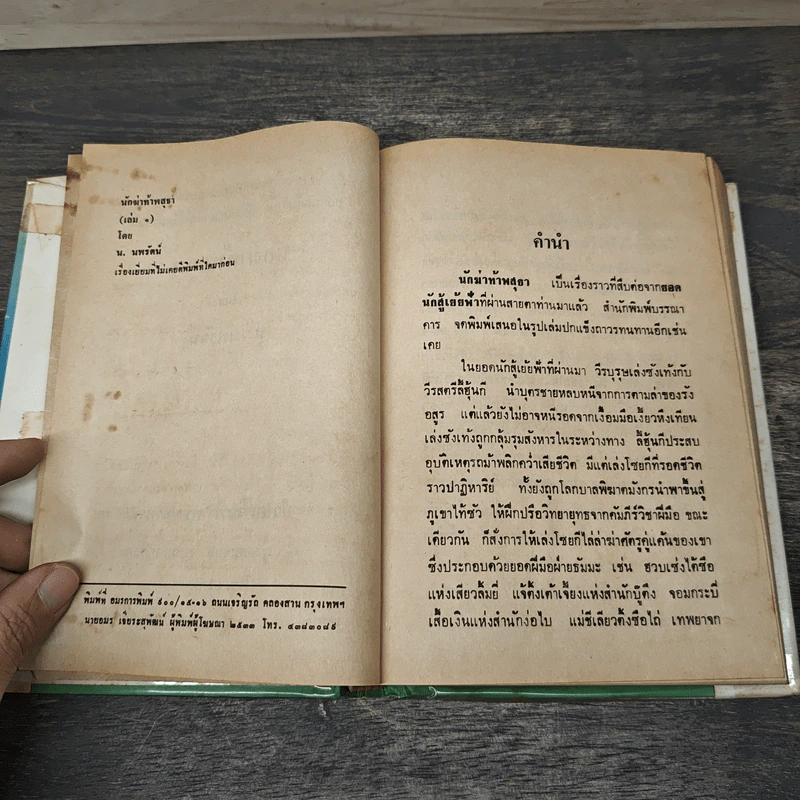 นักฆ่าท้าพสุธา
(เล่ม ๑)
โดย
น. นพรัตน์
เรื่องเยี่ยมที่ไม่เคยตีพิมพ์ที่ใดมาก่อน
พิมพ์ที่ อมรการพิมพ์ ๙๐๐/๑๕-๑๖ ถนนเจริญรัถ คลองสาน กรุงเทพฯ
นายอมร เจียระสุพัฒน์ ผู้พิมพ์ผู้โฆษณา ๒๕๓๓ โทร. ๔๓๘๓๐๘๕
คำนำ
นักฆ่าท้าพสุธา เป็นเรื่องราวที่สืบต่อจากยอด
นักสู้เย้ยฟ้าที่ผ่านสายตาท่านมาแล้ว สำนักพิมพ์บรรณา
คาร จัดพิมพ์เสนอในรูปเล่มปกแข็งถาวรทนทานอีกเช่น
เคย
ในยอดนักสู้เย้ยฟ้าที่ผ่านมา วีรบุรุษเล่งซังเท้งกับ
วีรสตรีลี้ฮุ้นกี นำบุตรชายหลบหนีจากการตามล่าของรัง
อสูร แต่แล้วยังไม่อาจหนีรอดจากเงื้อมมือเงี้ยวหึงเทียน
เล่งซังเท้งถูกกลุ้มรุมสังหารในระหว่างทาง ลี้ฮุ้นกีประสบ
อุบัติเหตุรถม้าพลิกคว่ำเสียชีวิต มีแต่เล่งโซยกีที่รอดชีวิต
ราวปาฏิหาริย์ ทั้งยังถูกโลกบาลพิฆาตมังกรนำพาขึ้นสู่
ภูเขาไท้ซัว ให้ฝึกปรือวิทยายุทธจากคัมภีร์วิชาฝีมือ ขณะ
เดียวกัน ก็สั่งการให้เล่งโซยกีไล่ล่าฆ่าศัตรูคู่แค้นของเขา
ซึ่งประกอบด้วยยอดฝีมือฝ่ายธัมมะ เช่น ฮวบเซ่งไต้ซือ
แห่งเสียวลิ้มยี่ แจ้ตั้งเต้าเจี้ยงแห่งสำนักบู๊ตึ๊ง จอมกระบี่
เสื้อเงินแห่งสำนักง่อไบ แม่ชีเสียวตั้งซือไถ่ เทพยาจก